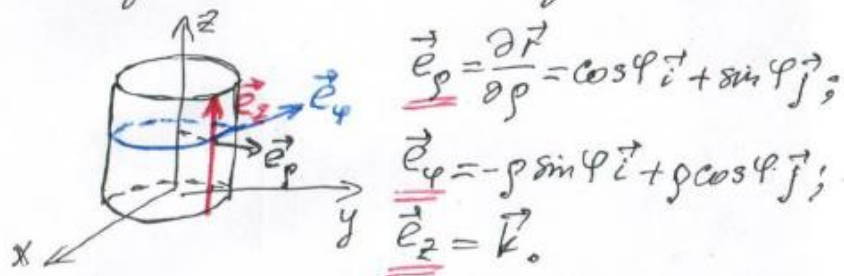 z⃗
e⃗_z
e⃗_φ
e⃗_ρ
y
x
e⃗_ρ = ∂r⃗/∂ρ = cosφ i⃗ + sinφ j⃗;
e⃗_φ = -ρ sinφ i⃗ + ρ cosφ j⃗;
e⃗_z = k⃗.